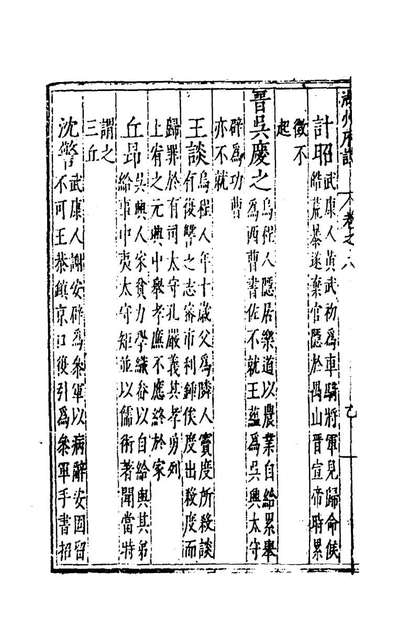 湖州府誌 卷之六
計昭 武康人黃武初為車騎將軍見歸命侯
皓荒暴遂棄官隱於禺山晉宣帝時累
徵不
起
晉吳慶之 烏程人隱居樂道以農業自給累舉
為西曹書佐不就王蘊為吳興太守
辟為功曹
亦不就
王談 烏程人年十歲父為隣人竇度所殺談
有復讐之志密市利鍤俟度出殺度而
歸罪於有司太守孔嚴義其孝勇列
上宥之元興中舉孝廉不應終於家
丘昂 吳興人家貧力學織畚以自給與其弟
給事中夷太守矩並以儒術著聞當時
謂之
三丘
沈警 武康人謝安辟為參軍以病辭安固留
不可王恭鎮京口復引為參軍手書招